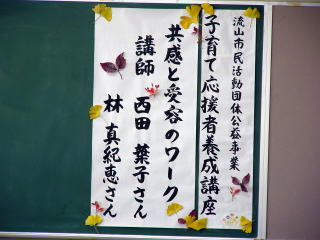 流山市民活動団体公益事業
子育て応援者養成講座
共感と受容のワーク
講師 西田 葉子さん
林 真紀恵さん